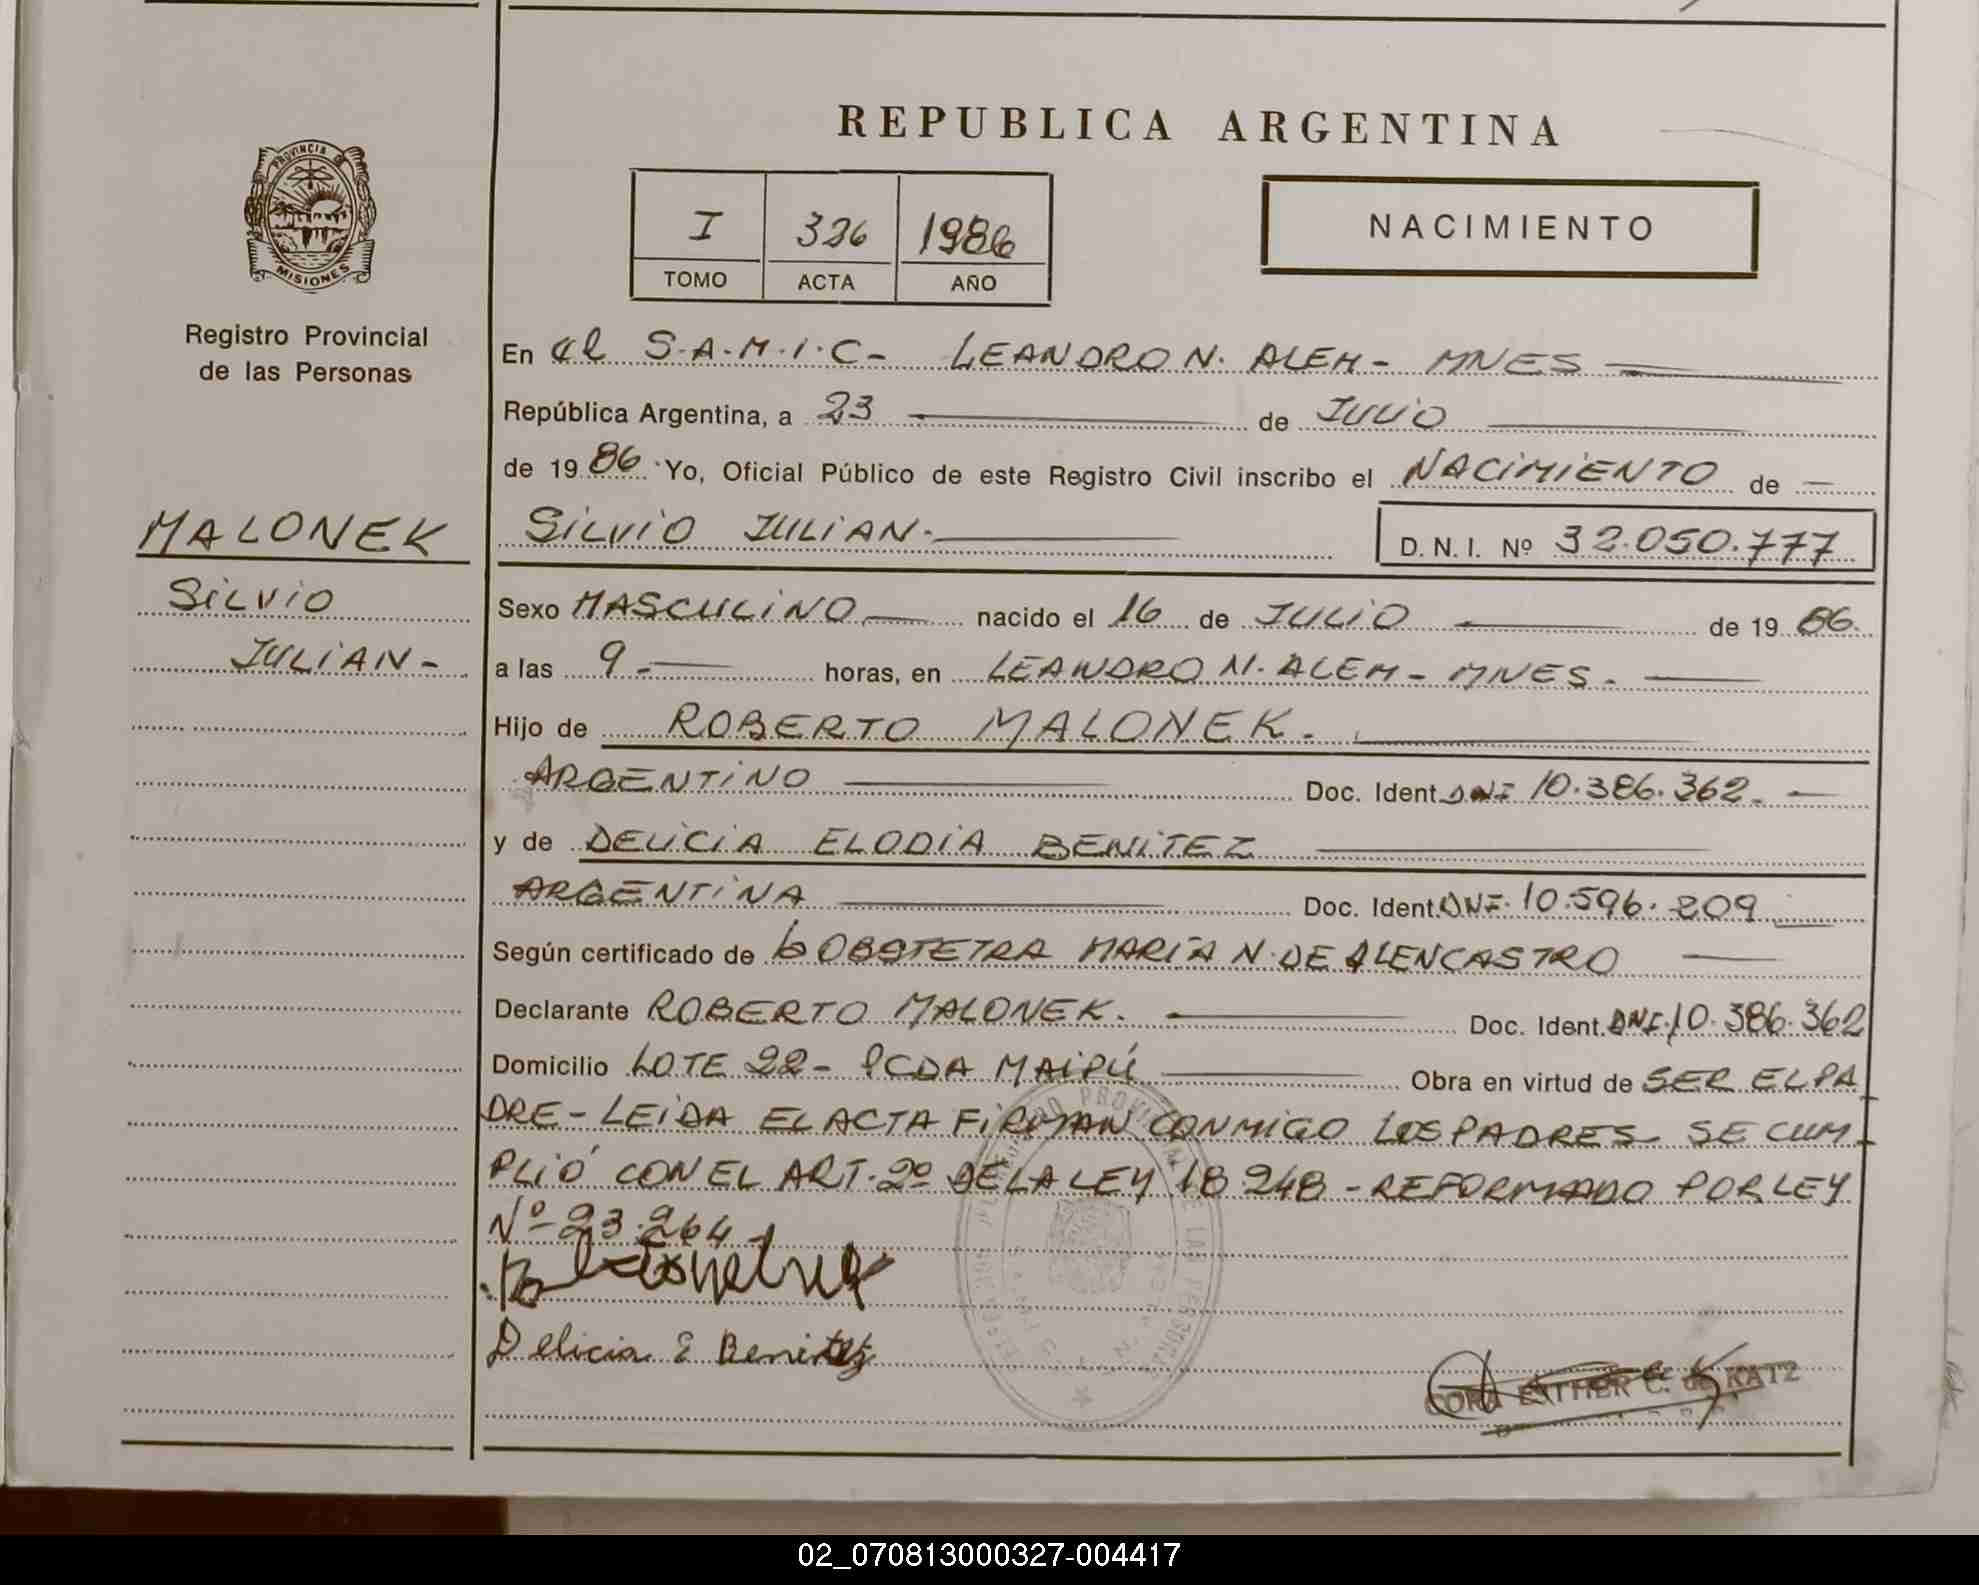 REPUBLICA ARGENTINA
PROVINCIA DE
MISIONES
Registro Provincial
de las Personas
I 326 1986
TOMO ACTA AÑO
NACIMIENTO
En el S.A.M.I.C- LEANDRO N. ALEM - MNES
República Argentina, a 23 de JULIO
de 1986 Yo, Oficial Público de este Registro Civil inscribo el NACIMIENTO de
MALONEK
SILVIO
JULIAN-
SILVIO JULIAN.
D. N. I. Nº 32.050.777
Sexo MASCULINO nacido el 16 de JULIO de 1986.
a las 9.- horas, en LEANDRO N. ALEM - MNES.
Hijo de ROBERTO MALONEK.
ARGENTINO Doc. Ident DNI 10.386.362.
y de DELICIA ELODIA BENITEZ
ARGENTINA Doc. Ident. DNI. 10.596.209
Según certificado de LA OBSTETRA MARIA N. DE ALENCASTRO
Declarante ROBERTO MALONEK. Doc. Ident. DNI. 10.386.362
Domicilio LOTE 22- PCDA MAIPÚ Obra en virtud de SER EL PA
DRE - LEIDA EL ACTA FIRMAN CONMIGO LOS PADRES SE CUM-
PLIÓ CON EL ART. 2º DE LA LEY 18.248 - REFORMADO POR LEY
Nº 23.264
Delicia E Benitez
CORA ESTHER C. de KATZ
02_070813000327-004417